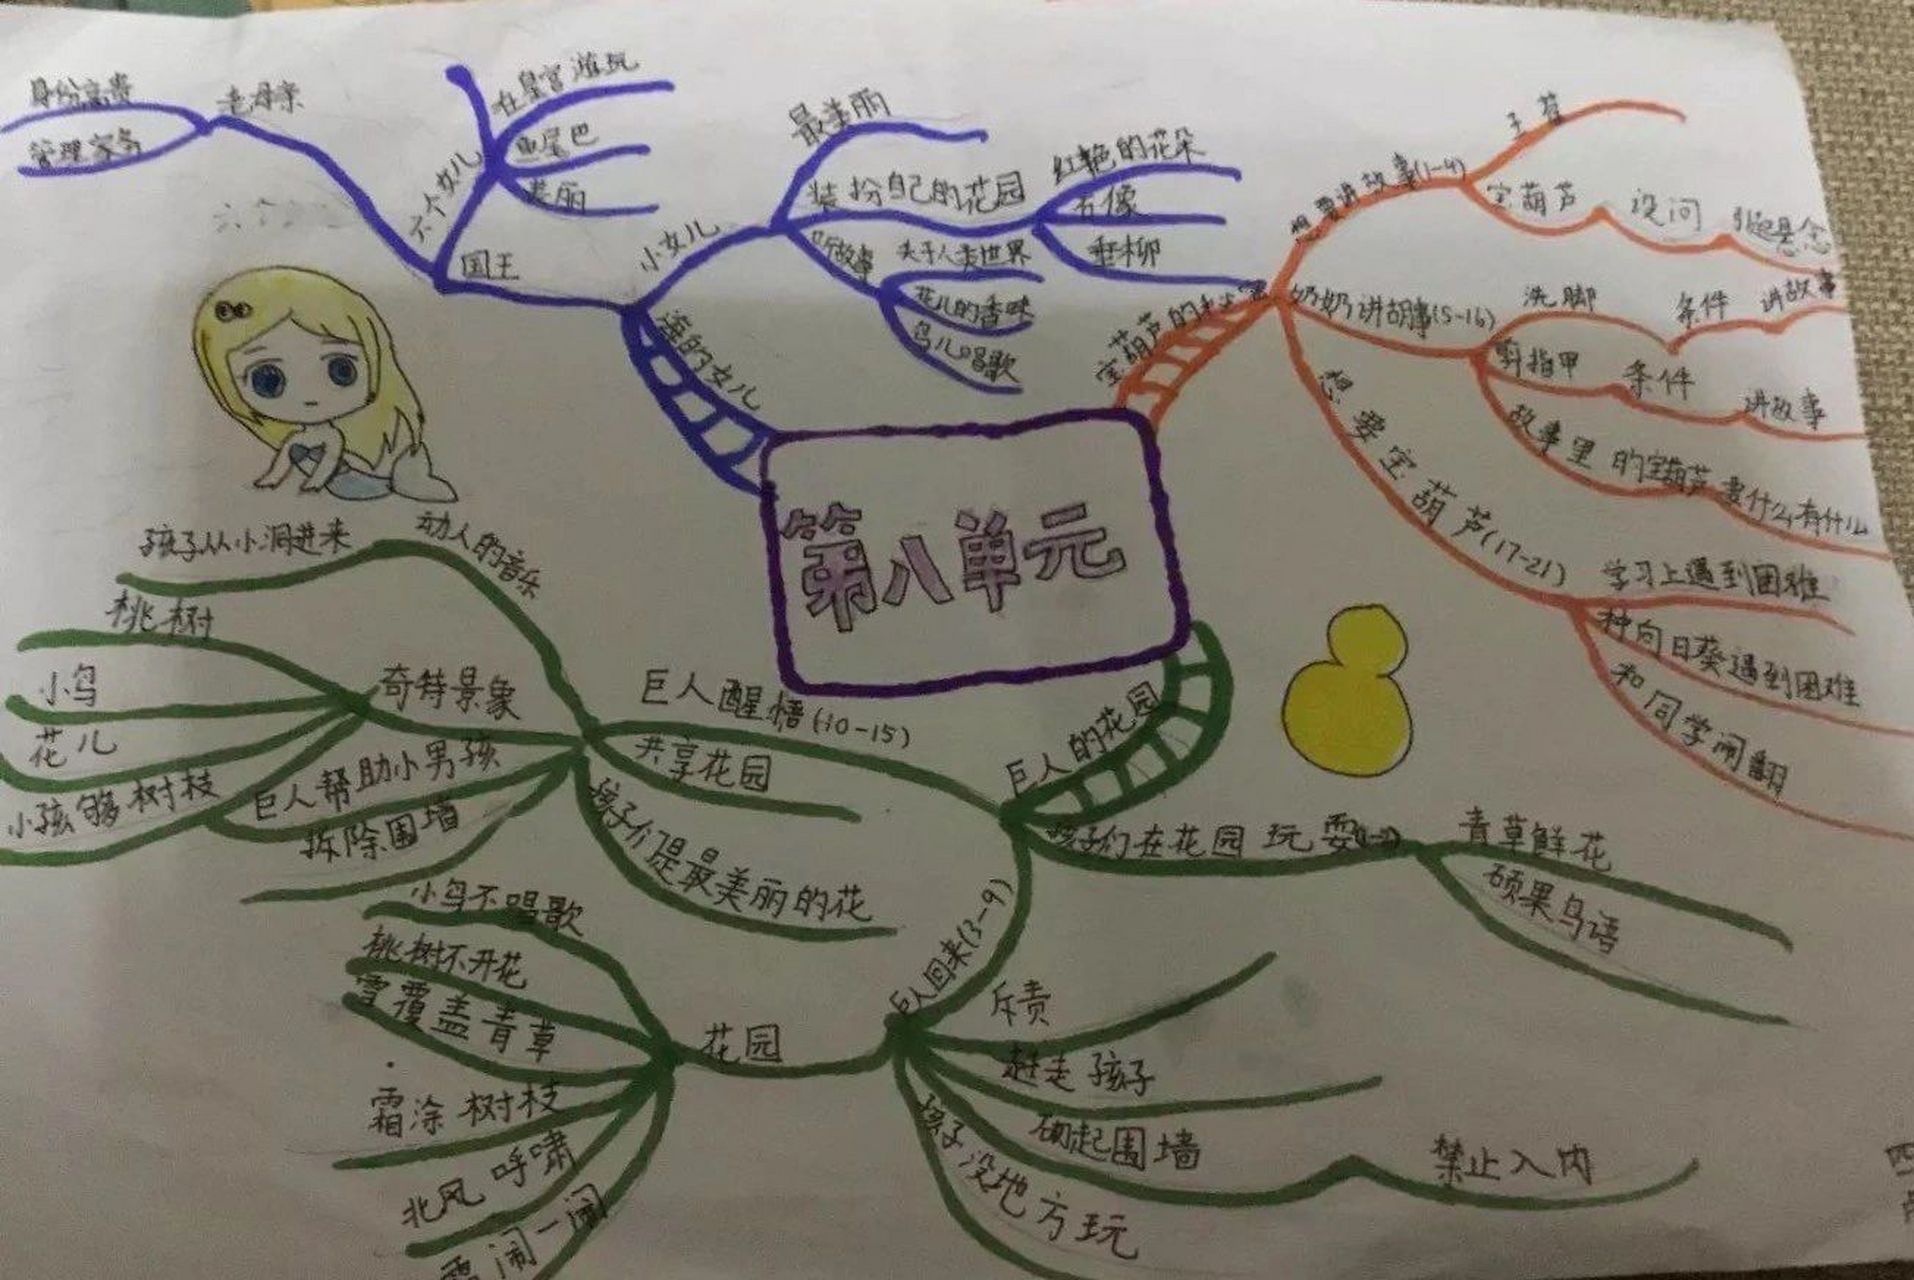 第八单元
海的女儿
国王
老母亲
身份高贵
管理家务
六个女儿
在皇宫游玩
鱼尾巴
美丽
小女儿
最美丽
装扮自己的花园
红艳的花朵
石像
垂柳
听故事
关于人类世界
花儿的香味
鸟儿唱歌
宝葫芦的秘密
想要讲故事(1-4)
王葆
宝葫芦
设问
引起悬念
奶奶讲故事(5-16)
洗脚
条件
讲故事
剪指甲
条件
讲故事
故事里的宝葫芦
要什么有什么
想要宝葫芦(17-21)
学习上遇到困难
种向日葵遇到困难
和同学闹翻
巨人的花园
孩子们在花园玩耍
青草鲜花
硕果鸟语
巨人回来(3-9)
斥责
赶走孩子
砌起围墙
禁止入内
孩子没地方玩
花园
小鸟不唱歌
桃树不开花
雪覆盖青草
霜涂树枝
北风呼啸
雹闹一闹
巨人醒悟(10-15)
共享花园
孩子们是最美丽的花
动人的音乐
孩子从小洞进来
奇特景象
桃树
小鸟
花儿
小孩够树枝
巨人帮助小男孩
拆除围墙